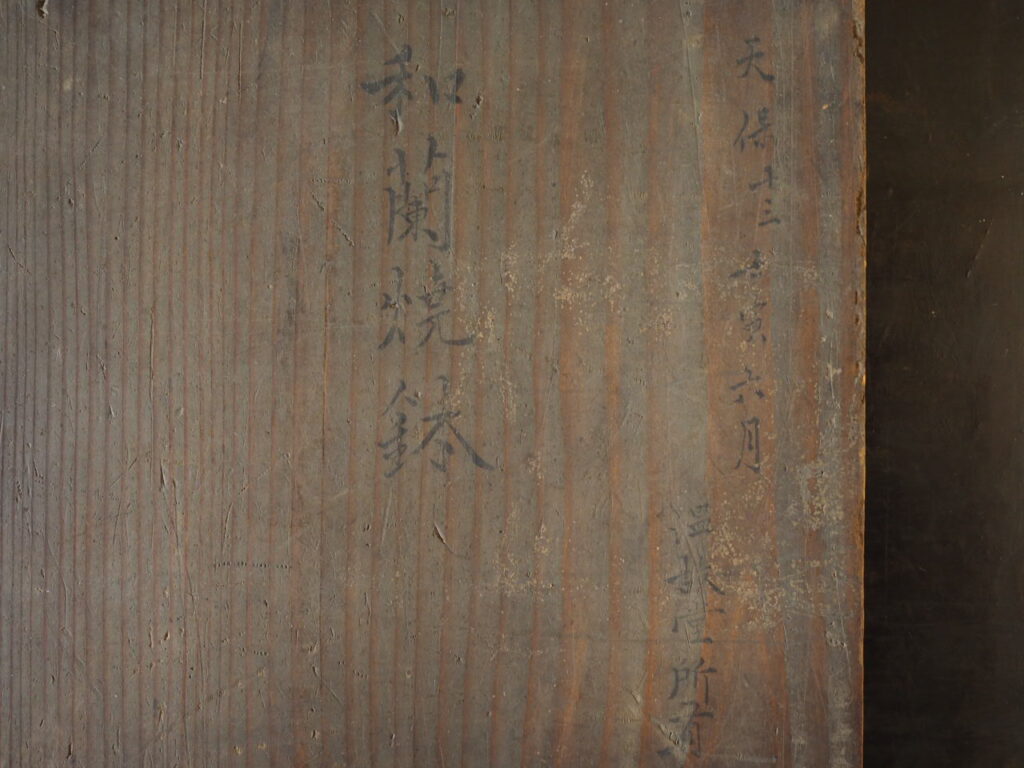 天保十三壬寅六月
所有
和蘭焼鉢